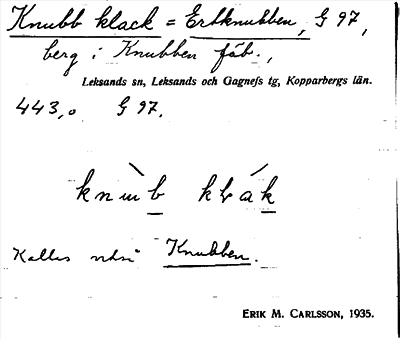 Knubb klack = Erkknubben, G 97,
berg i Knubben fäb.,
Leksands sn, Leksands och Gagnefs tg, Kopparbergs län.
443,0 G 97.
Kallas också Knubben.
ERIK M. CARLSSON, 1935.